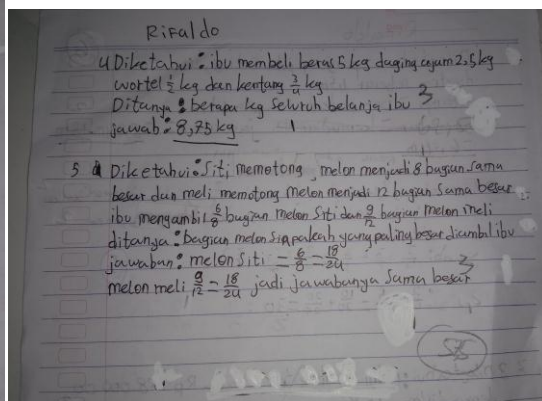 Rifaldo
4 Diketahui : ibu membeli beras 5 kg daging ayam 2,5 kg
wortel 1/2 kg dan kentang 3/4 kg
Ditanya : berapa kg seluruh belanja ibu 3
jawab : 8,75 kg 1
5 Diketahui : Siti memotong melon menjadi 8 bagian sama
besar dan meli memotong melon menjadi 12 bagian sama besar
ibu mengambil 6/8 bagian melon Siti dan 9/12 bagian melon meli
ditanya : bagian melon siapakah yang paling besar diambil ibu
jawaban : melon Siti = 6/8 = 18/24
melon meli 9/12 = 18/24 jadi jawabanya sama besar 3